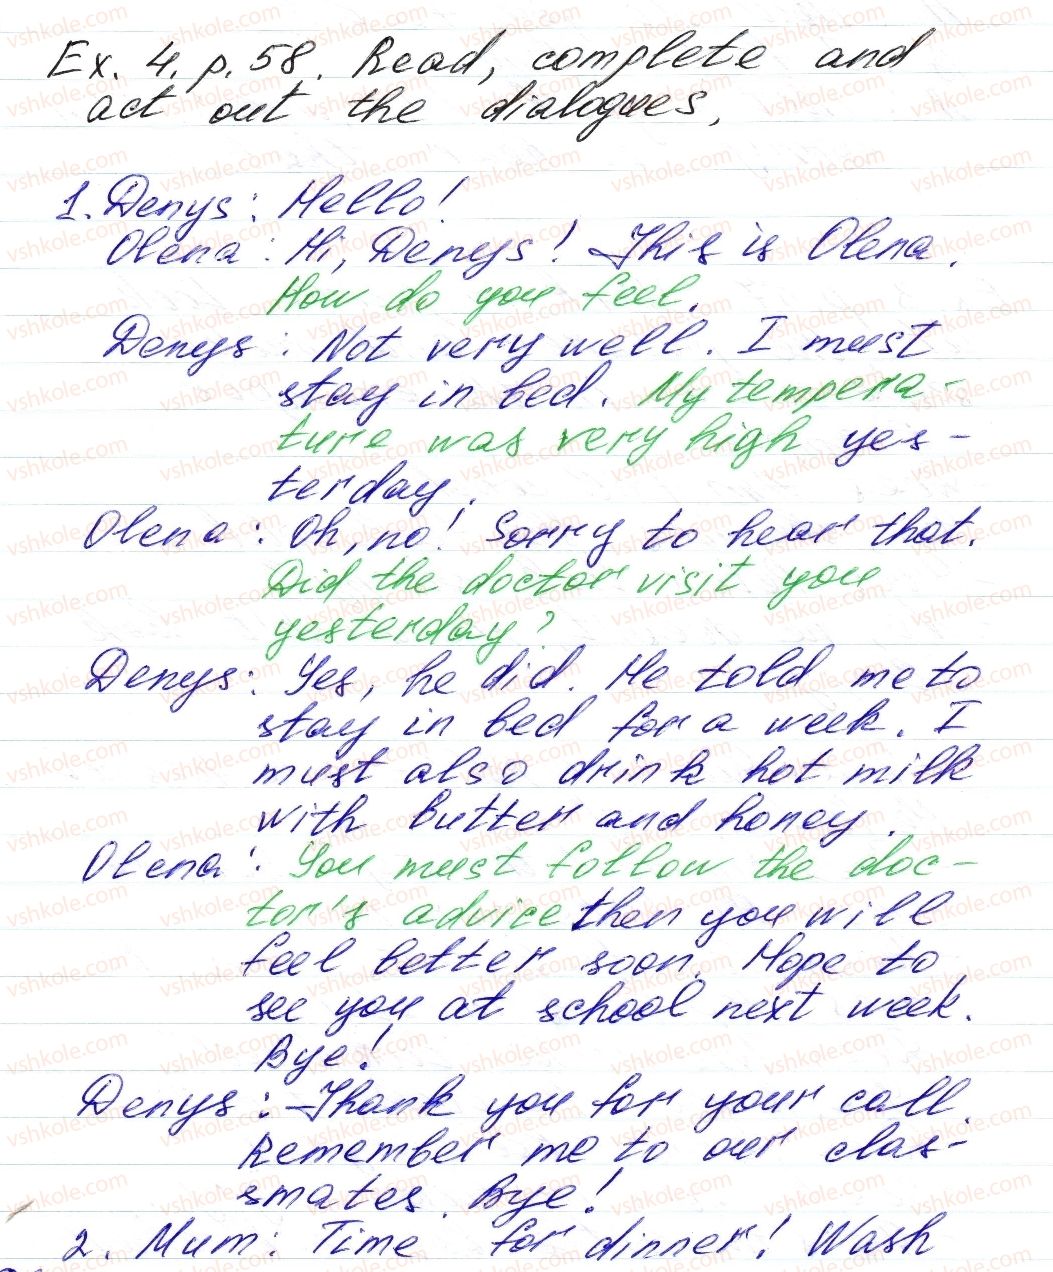 Ex. 4. p. 58. Read, complete and
act out the dialogues.
1. Denys: Hello!
Olena: Hi, Denys! This is Olena.
How do you feel.
Denys: Not very well. I must
stay in bed. My tempera-
ture was very high yes-
terday.
Olena: Oh, no! Sorry to hear that.
Did the doctor visit you
yesterday?
Denys: Yes, he did. He told me to
stay in bed for a week. I
must also drink hot milk
with butter and honey.
Olena: You must follow the doc-
tor's advice then you will
feel better soon. Hope to
see you at school next week.
Bye!
Denys: Thank you for your call.
Remember me to our clas-
smates. Bye!
2. Mum: Time for dinner! Wash